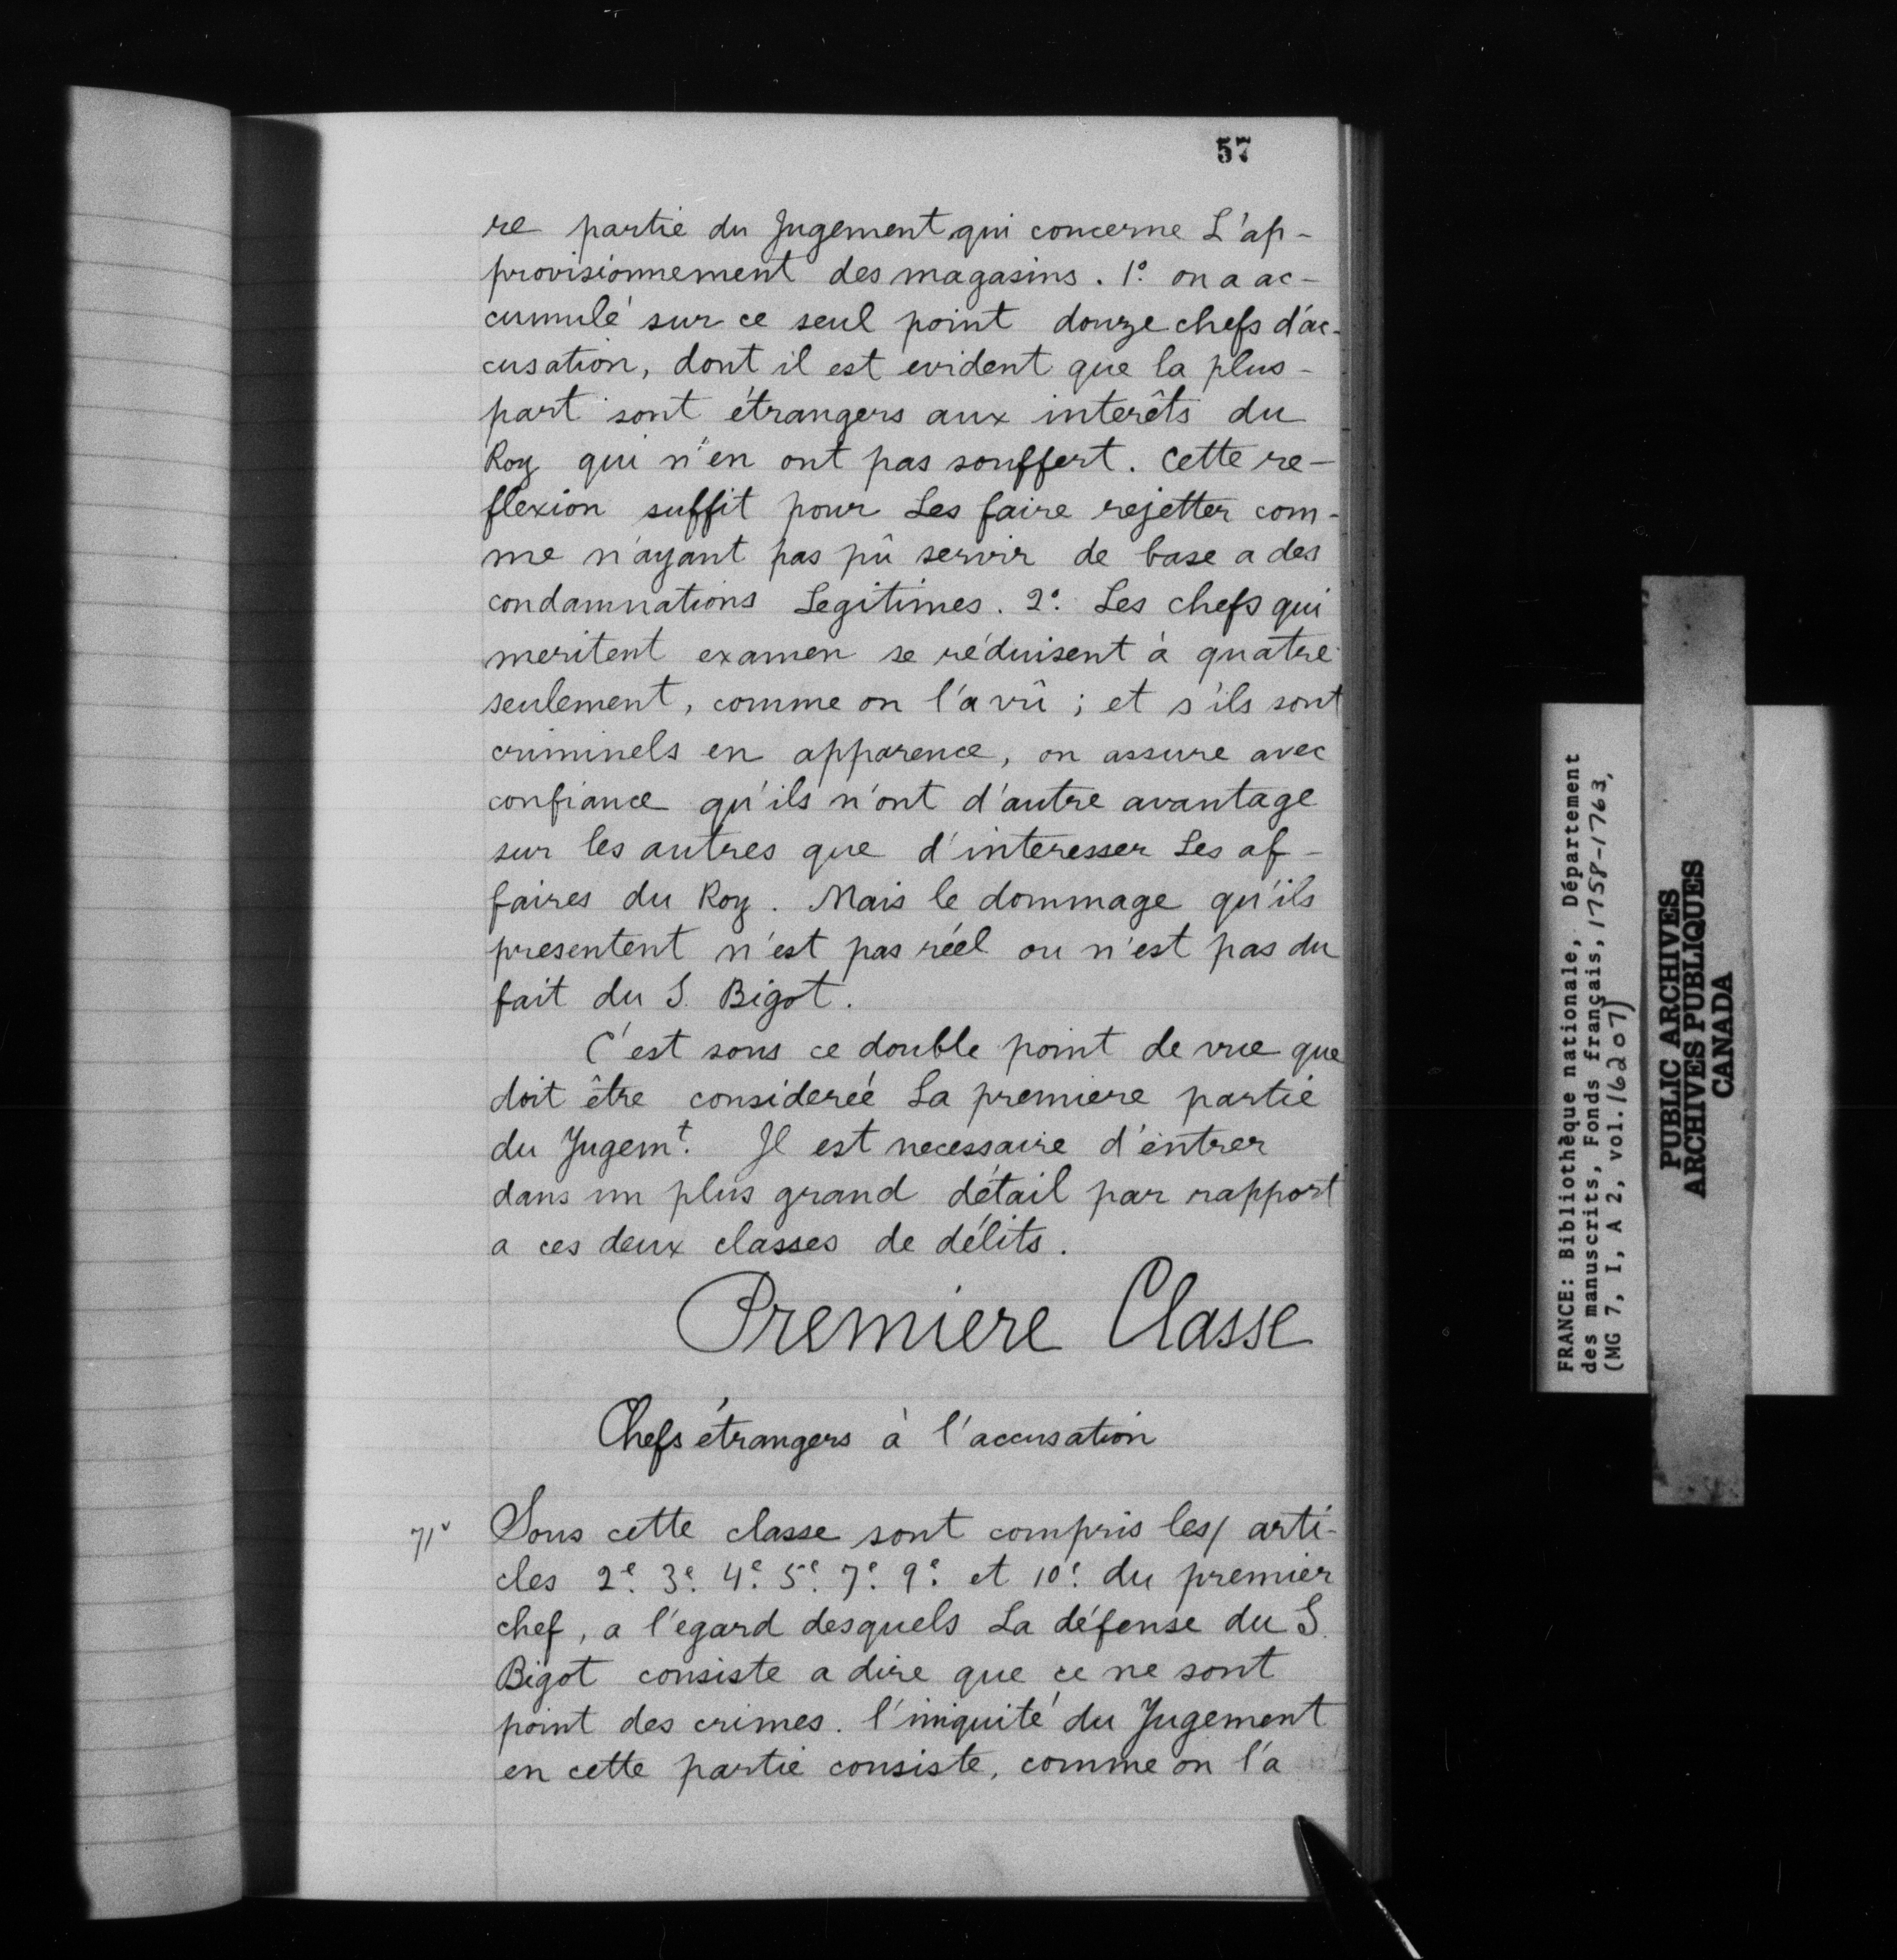 57
re partie du Jugement qui concerne L'ap-
provisionnement des magasins. 1º. on a ac-
cumulé sur ce seul point douze chefs d'ac-
cusation, dont il est evident que la plus-
part sont étrangers aux interêts du
Roy qui n'en ont pas souffert. Cette re-
flexion suffit pour Les faire rejetter com-
me n'ayant pas pû servir de base a des
condamnations Legitimes. 2º. Les chefs qui
meritent examen se réduisent à quatre
seulement, comme on l'a vû ; et s'ils sont
criminels en apparence, on assure avec
confiance qu'ils n'ont d'autre avantage
sur les autres que d'interesser Les af-
faires du Roy. Mais le dommage qu'ils
presentent n'est pas réel ou n'est pas du
fait du S. Bigot.
C'est sous ce double point de vue que
doit être considereé La premiere partie
du Jugemt. Il est necessaire d'entrer
dans un plus grand détail par rapport
a ces deux classes de délits.
Premiere Classe
Chefs étrangers à l'accusation
71v Sous cette classe sont compris les/ arti-
cles 2e. 3e. 4e. 5e. 7e. 9e. et 10e. du premier
chef, a l'égard desquels La défense du S.
Bigot consiste a dire que ce ne sont
point des crimes. l'iniquité du Jugement
en cette partie consiste, comme on l'a
FRANCE: Bibliothèque nationale, Département
des manuscrits, Fonds français, 1758-1763,
(MG 7, I, A 2, vol. 16207)
PUBLIC ARCHIVES
ARCHIVES PUBLIQUES
CANADA